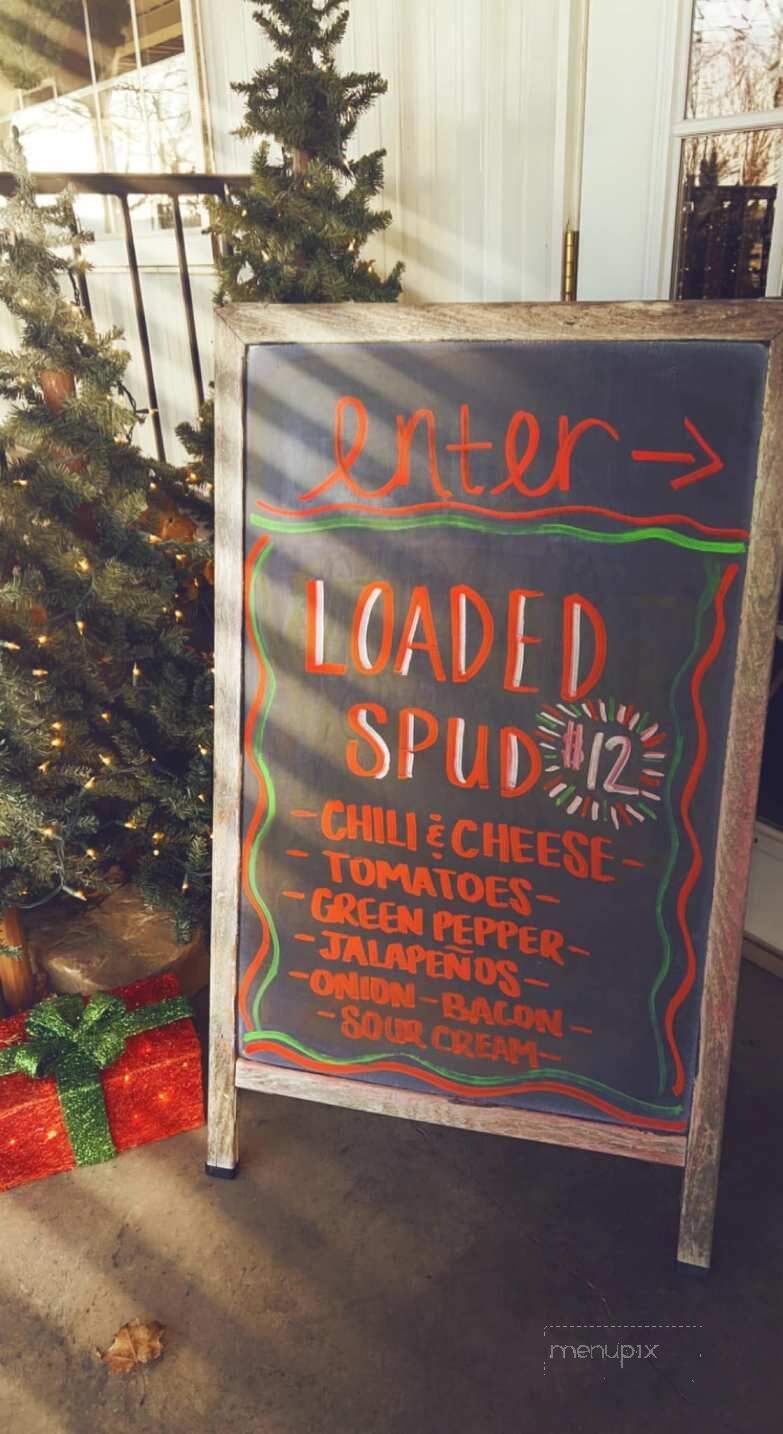 enter →
LOADED
SPUD #12
- CHILI & CHEESE -
- TOMATOES -
- GREEN PEPPER -
- JALAPEÑOS -
- ONION - BACON -
- SOUR CREAM -
menupix